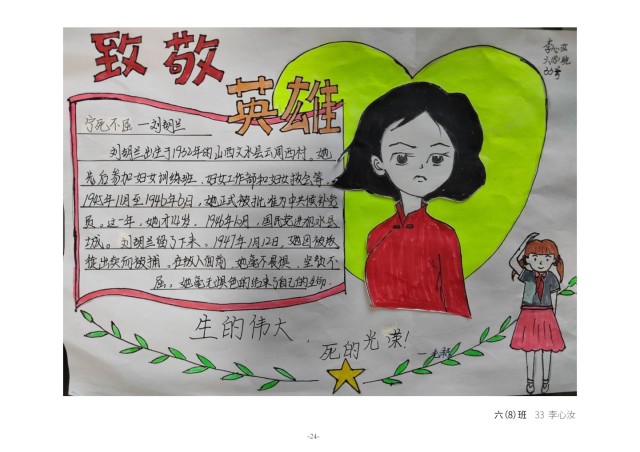 致敬
英雄
李心汝
六(8)班
33号
宁死不屈 —刘胡兰
刘胡兰出生于1932年的山西文水县云周西村。她
先后参加妇女训练班、妇女工作部和妇女救会等。
1945年11月至1946年6月,她正式被批准为中共候补党
员。这一年,她才14岁。1946年12月,国民党进
城。刘胡兰留了下来。1947年1月12日,她因被叛
徒出卖而被捕。在敌人面前,她毫不畏惧,坚贞不
屈。她毫无惧色的结束了自己的生命。
生的伟大,
死的光荣!
六(8)班 33 李心汝
-24-